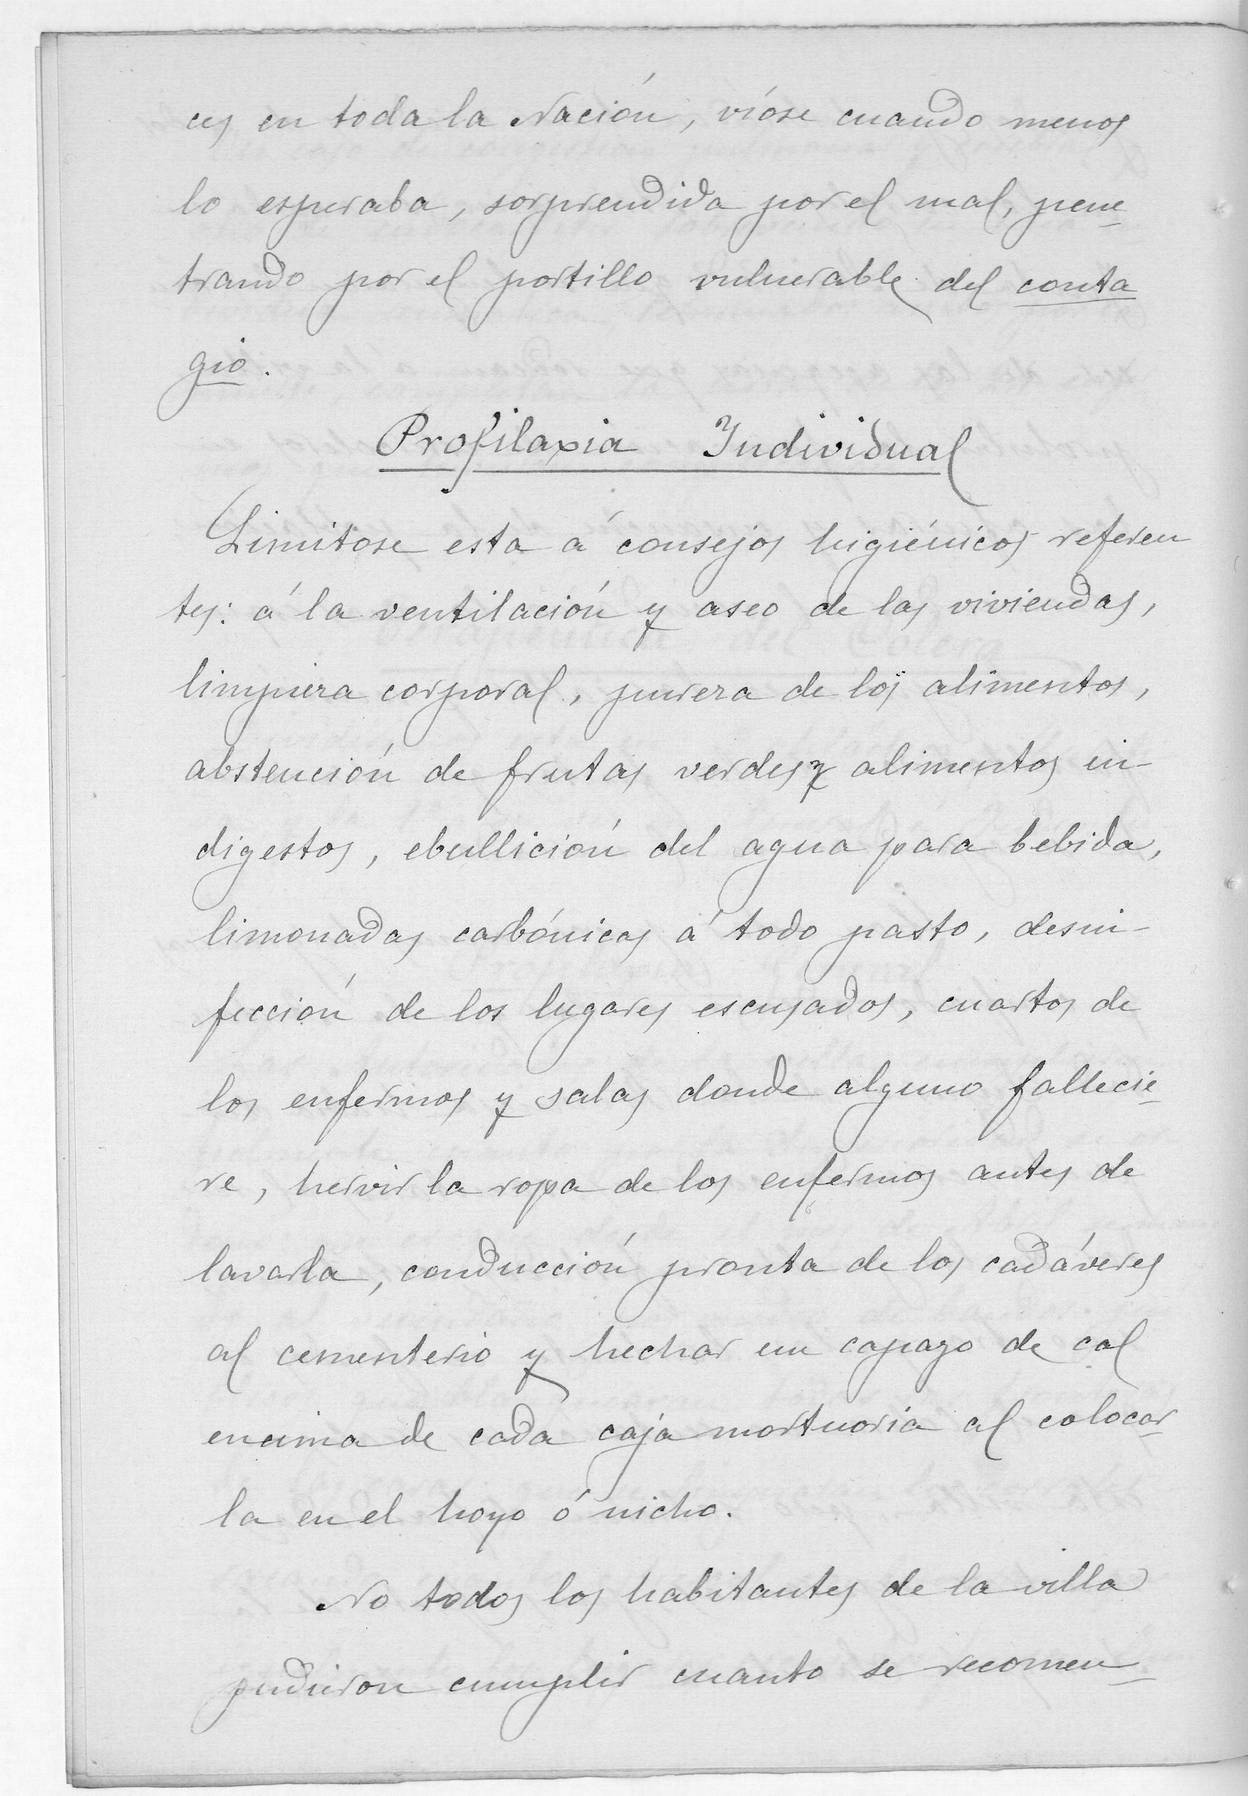 ces en toda la Nación, vióse cuando menos
lo esperaba, sorprendida por el mal, pene-
trando por el portillo vulnerable del conta
gio.
Profilaxia Individual
Limitose esta á consejos higiénicos referen
tes: á la ventilación y aseo de las viviendas,
limpieza corporal, pureza de los alimentos,
abstención de frutas verdes y alimentos in-
digestos, ebullición del agua para bebida,
limonadas carbónicas á todo pasto, desin-
fección de los lugares escusados, cuartos de
los enfermos y salas donde alguno fallecie-
re, hervir la ropa de los enfermos antes de
lavarla, conducción pronta de los cadáveres
al cementerio y hechar un capazo de cal
encima de cada caja mortuoria al colocar-
la en el hoyo ó nicho.
No todos los habitantes de la villa
pudieron cumplir cuanto se recomen-